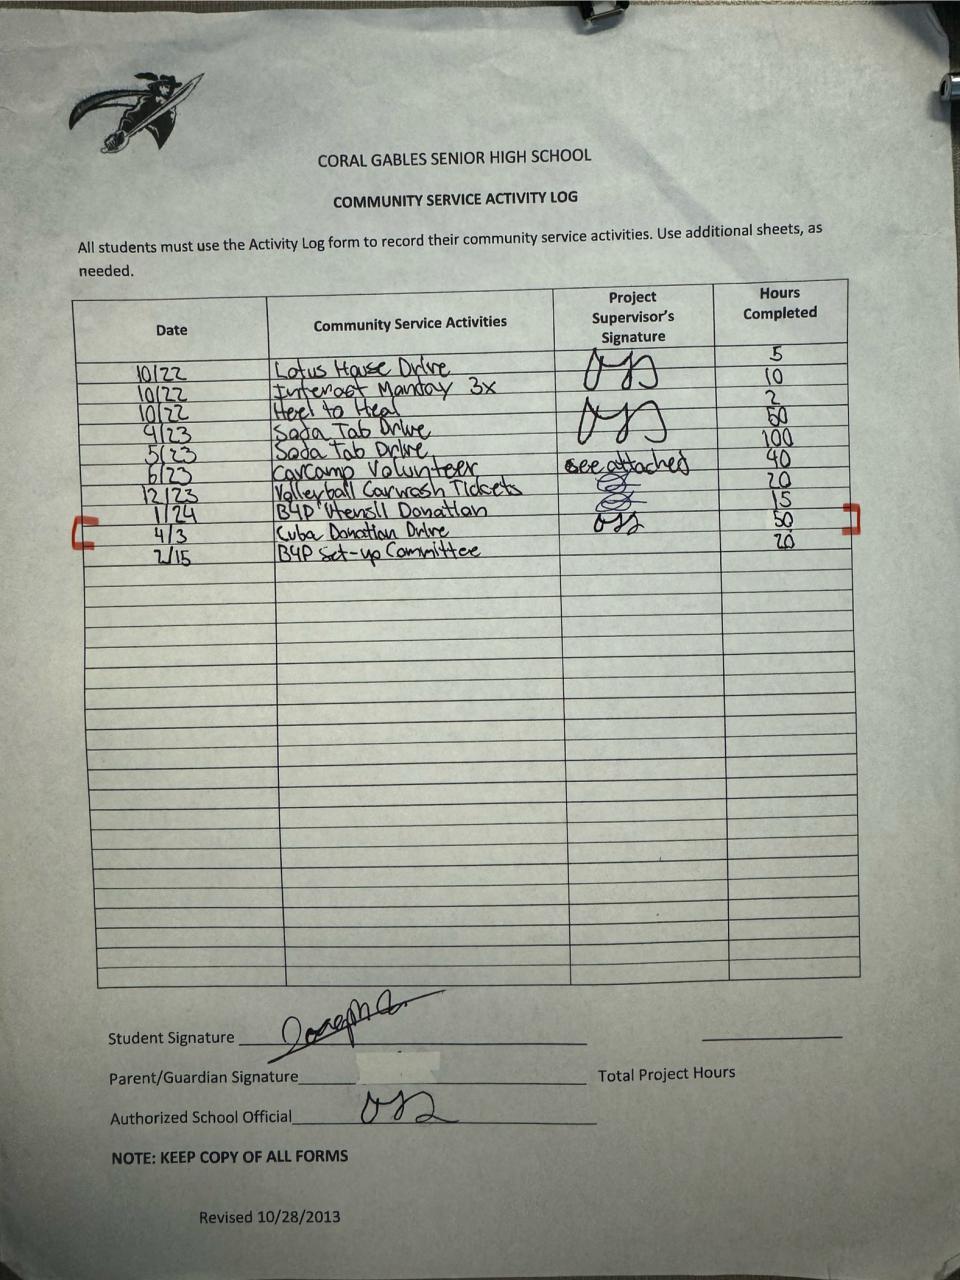 CORAL GABLES SENIOR HIGH SCHOOL
COMMUNITY SERVICE ACTIVITY LOG
All students must use the Activity Log form to record their community service activities. Use additional sheets, as
needed.
Date Community Service Activities Project Supervisor's Signature Hours Completed
10/22 Lotus House Drive 5
10/22 Interact Monday 3x 10
10/22 Heel to Heal 2
4/23 Soda Tab Drive 50
5/23 Soda Tab Drive 100
6/23 CarCamp Volunteer see attached 40
12/23 Volleyball Carwash Tickets 20
1/24 B4P Utensil Donation 15
4/3 Cuba Donation Drive 50
2/15 B4P Set-up Committee 20
Student Signature
Parent/Guardian Signature Total Project Hours
Authorized School Official
NOTE: KEEP COPY OF ALL FORMS
Revised 10/28/2013